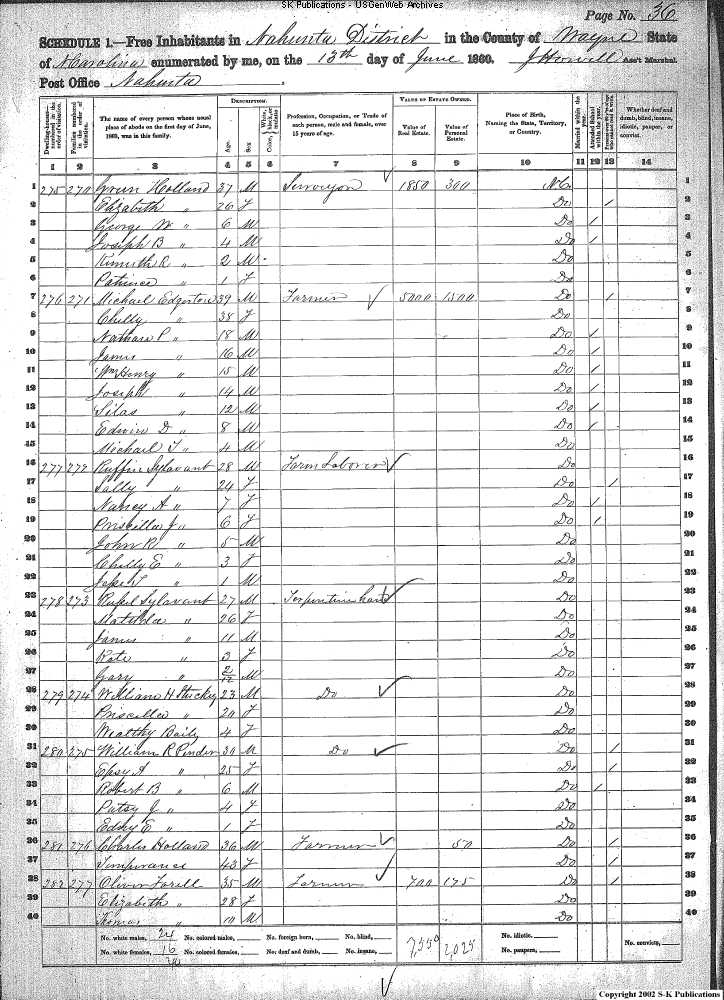 SK Publications - USGenWeb Archives
Page No. 36
SCHEDULE 1.—Free Inhabitants in Nahunta District in the County of Wayne State
of N Carolina enumerated by me, on the 13th day of June 1860. Ass't Marshal.
Post Office Nahunta
Dwelling-houses—numbered in the order of visitation.
Families numbered in the order of visitation.
The name of every person whose usual place of abode on the first day of June, 1860, was in this family.
DESCRIPTION.
Age.
Sex
Color, White, black, or mulatto
Profession, Occupation, or Trade of each person, male and female, over 15 years of age.
VALUE OF ESTATE OWNED.
Value of Real Estate.
Value of Personal Estate.
Place of Birth, Naming the State, Territory, or Country.
Married within the year.
Attended School within the year.
Whether deaf and dumb, blind, insane, idiotic, pauper, or convict.
1 2 3 4 5 6 7 8 9 10 11 12 13 14
1 275 270 Green Holland 37 M Surveyor 1850 300 NC 1
2 Elizabeth " 26 F Do / 2
3 George W " 6 M Do / 3
4 Joseph B " 4 M Do / 4
5 Kinneth R " 2 M Do 5
6 " 1 F Do 6
7 276 271 Michael Edgerton 39 M Farmer 5000 1500 Do / 7
8 Chelly " 38 F Do 8
9 Nathan P " 18 M Do / 9
10 James " 16 M Do / 10
11 Wm Henry " 15 M Do / 11
12 Joseph " 14 M Do / 12
13 Silas " 12 M Do / 13
14 Edwin D " 8 M Do / 14
15 Michael T " 4 M Do 15
16 277 272 Ruffin Sylavant 28 M Farm Laborer Do 16
17 Sally " 24 F Do / 17
18 Nancy A " 7 F Do / 18
19 Priscilla J " 6 F Do / 19
20 John R " 5 M Do 20
21 Chelly E " 3 F Do 21
22 " 1 M Do 22
23 278 273 Sylavant 27 M Terpentine Do 23
24 Matilda " 26 F Do 24
25 James " 11 M Do 25
26 Kate " 3 F Do 26
27 Gary " 2/12 M Do 27
28 279 274 William H Stuckey 23 M Do Do 28
29 Priscilla " 20 F Do 29
30 Wealthy Baily 4 F Do 30
31 280 275 William R Pender 30 M Do Do / 31
32 Epsy A " 25 F Do / 32
33 Robert B " 6 M Do / 33
34 Patsy J " 4 F Do 34
35 Edny E " 1 F Do 35
36 281 276 Charles Holland 36 M Farmer 50 Do / 36
37 Temperance 43 F Do / 37
38 282 277 Oliver 35 M Farmer 700 175 Do / 38
39 Elizabeth " 28 F Do 39
40 " 10 M Do 40
No. white males, 24 No. colored males, No. foreign born, No. blind, 7,550 2,025 No. idiotic, No. convicts,
No. white females, 16 No. colored females, No. deaf and dumb, No. insane, No. paupers,
Copyright 2002 S-K Publications